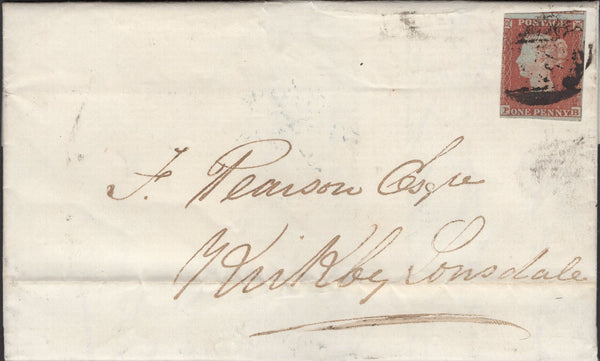 POSTAGE
ONE PENNY B
F. Pearson Esqre
Kirkby Lonsdale